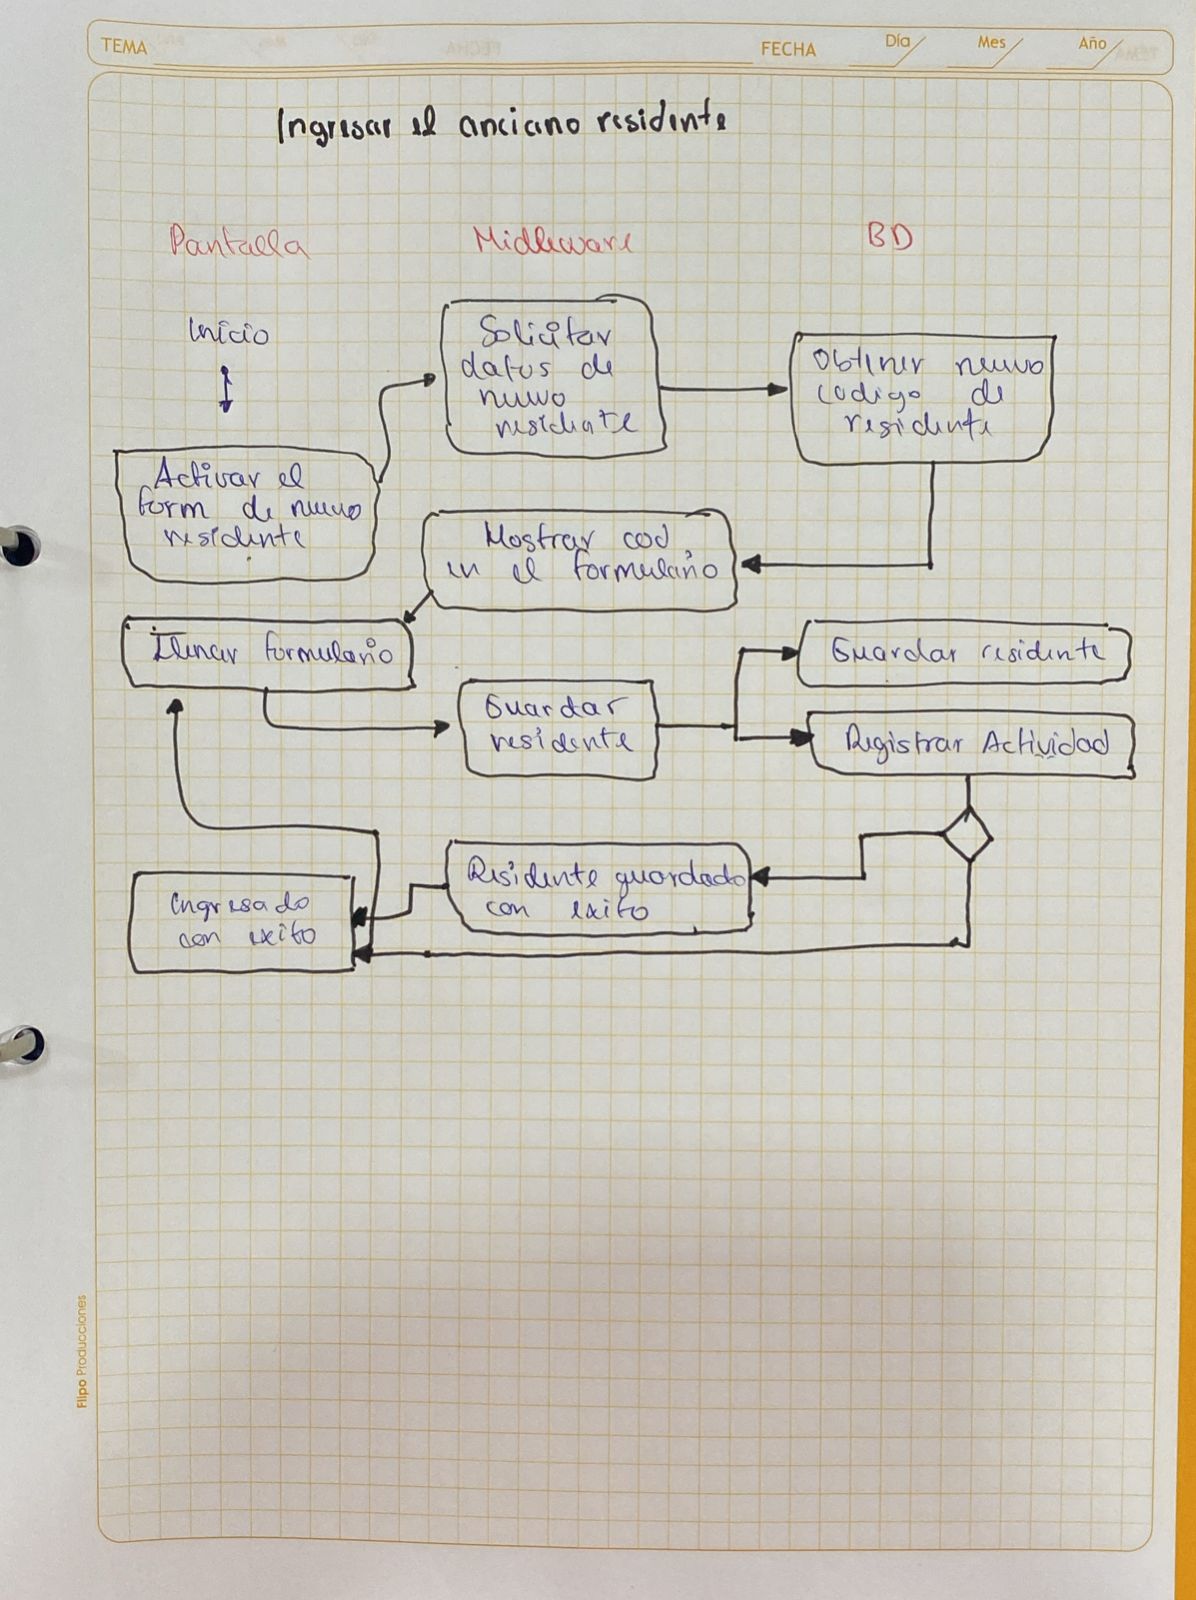 TEMA
FECHA
Día
Mes
Año
Ingresar el anciano residente
Pantalla
Midleware
BD
Inicio
Solicitar
datos de
nuevo
residente
Obtener nuevo
codigo de
residente
Activar el
form de nuevo
residente
Mostrar cod
en el formulario
Llenar formulario
Guardar
residente
Guardar residente
Registrar Actividad
Residente guardado
con exito
Ingresado
con exito
Flipo Producciones